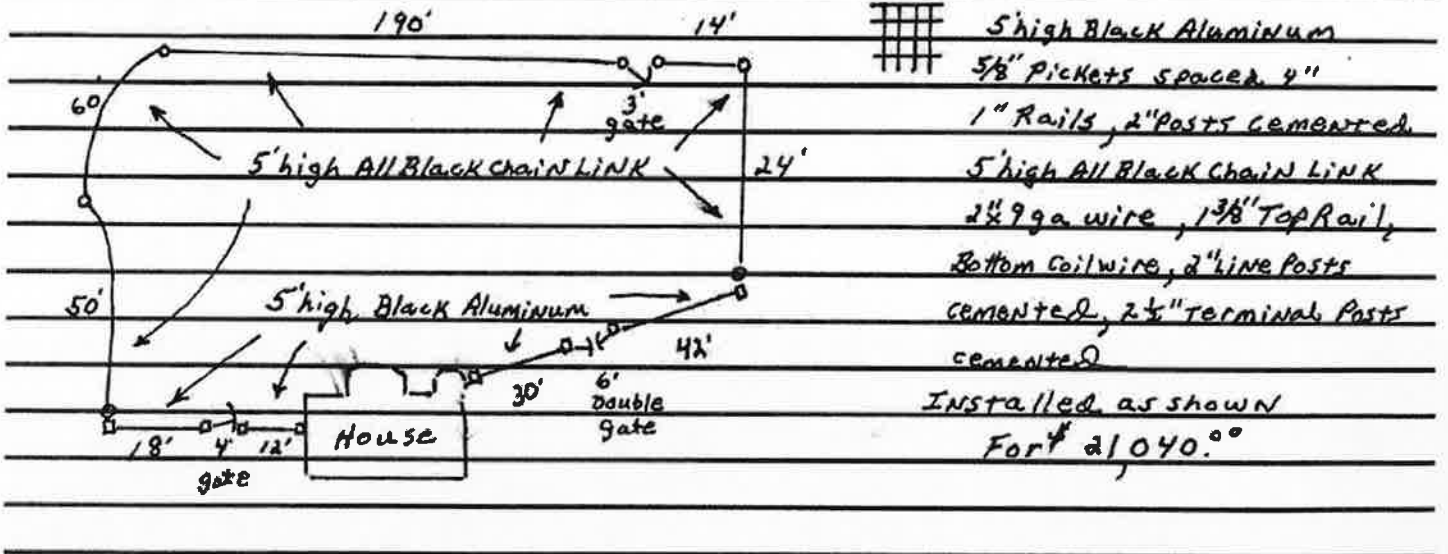 190'
14'
60'
3'
gate
5' high All Black Chain Link
24'
50'
5' high Black Aluminum
42'
30'
6'
Double
gate
18'
4'
12'
gate
House
5' high Black Aluminum
5/8" Pickets spaced 4"
1" Rails, 2" Posts cemented
5' high All Black Chain Link
2" x 9 ga wire, 1 3/8" Top Rail,
Bottom Coil wire, 2" Line Posts
cemented, 2 1/2" Terminal Posts
cemented
Installed as shown
For $ 21,040.00